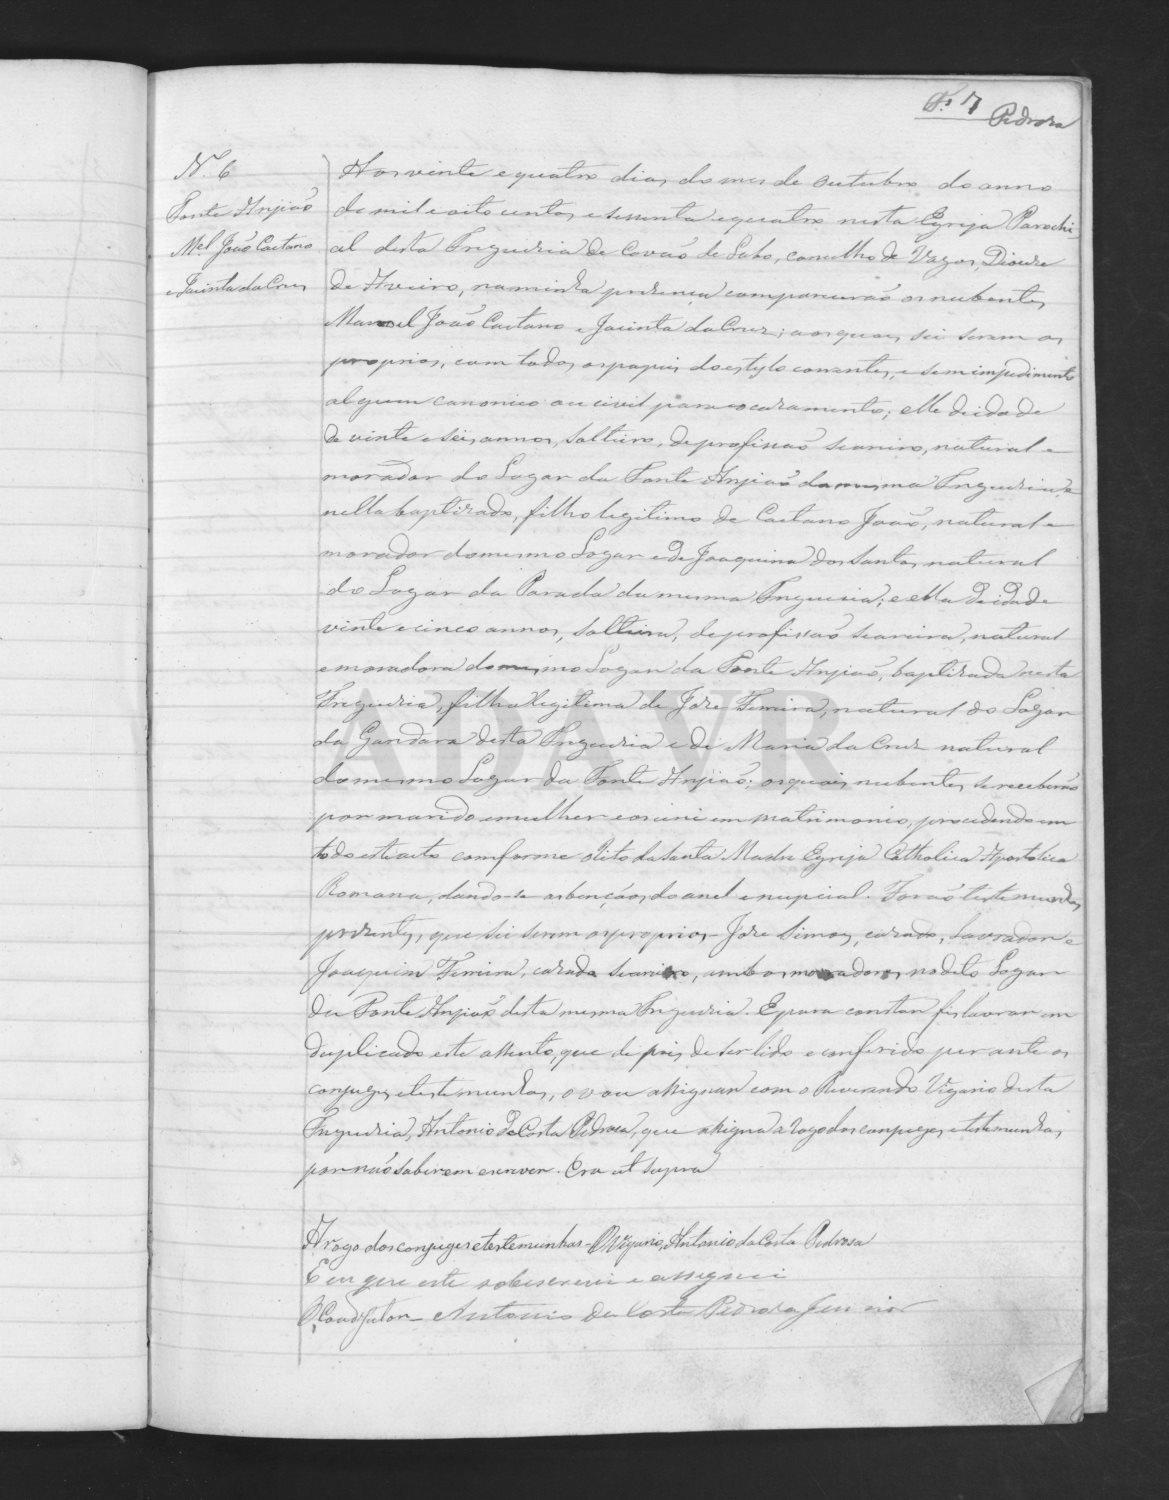 F. 7 Pedroza
N.º 6
Fonte Anjião
Mel João Caetano
e Jacinta da Cruz
Aos vinte e quatro dias do mes de Outubro do anno
de mil e oito centos e sessenta e quatro nesta Egreja Parochi-
al desta Freguezia de Covão do Lobo, concelho de Vagos, Diocese
de Aveiro, na minha presença comparecerão os nubentes
Manoel João Caetano e Jacinta da Cruz; aos quaes sei serem os
proprios, com todos os papeis do estylo correntes, e sem impedimento
algum canonico ou civil para o cazamento; elle de idade
de vinte e seis annos, solteiro, de profissão seareiro, natural e
morador do Logar da Fonte Anjião da mesma Freguezia, e
nella baptizado, filho legitimo de Caetano João, natural e
morador do mesmo Logar e de Joaquina dos Santos natural
do Logar da Parada da mesma Freguezia; e ella de idade
vinte e cinco annos, solteira, de profissão seareira, natural
e moradora do mesmo Logar da Fonte Anjião, baptizada nesta
Freguezia, filha legitima de Joze Ferreira, natural do Logar
da Gandara desta Freguezia e de Maria da Cruz natural
do mesmo Logar da Fonte Anjião; os quaes nubentes se receberão
por marido e mulher e os uni em matrimonio, procedendo em
todo este acto comforme o Rito da Santa Madre Egreja Catholica Apostolica
Romana, dando-se as bençãos do anel e nupcial. Forão testemunhas
prezentes, que sei serem os proprios Joze Simoes, cazado, Lavrador e
Joaquim Ferreira, cazado seareiro, ambos moradores no dito Logar
da Fonte Anjião desta mesma Freguezia. E para constar fis lavrar em
duplicado este assento, que depois de ser lido e conferido perante os
conjuges e testemunhas, o vou assignar com o Reverendo Vigario desta
Freguezia, Antonio da Costa Pedroza, que assigna a rogo dos conjuges, e testemunhas,
por não saberem escrever. Era ut supra
A rogo dos conjuges e testemunhas - O Vigario, Antonio da Costa Pedrosa
E eu que este sobescrevi e assignei
O Coadjutor - Antonio da Costa Pedroza Junior
ADAVR